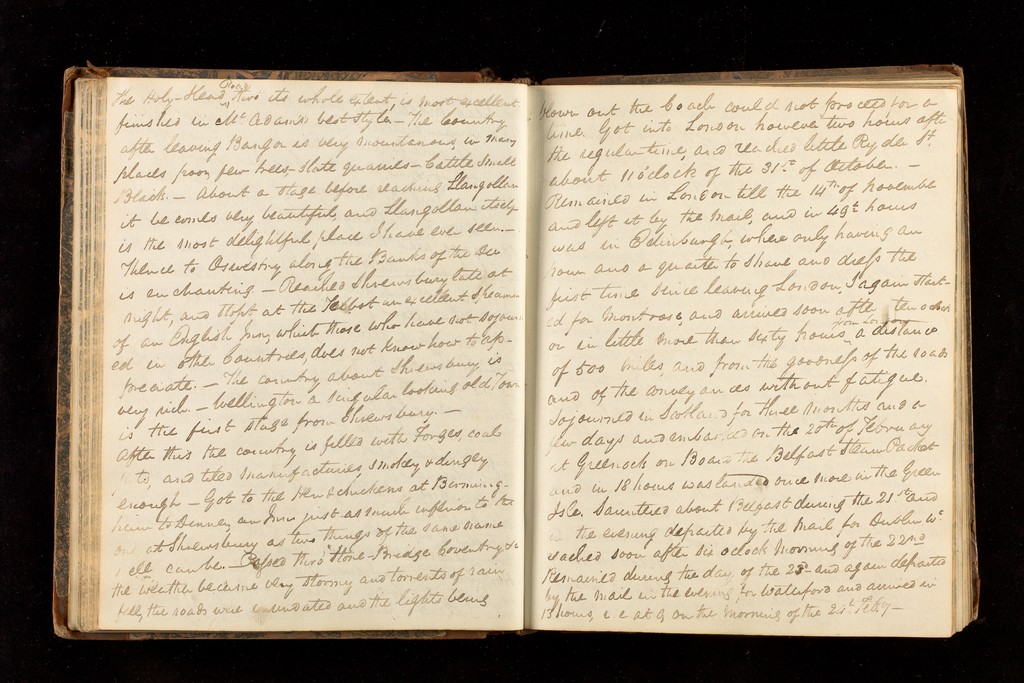 The Holy-Head Road thro its whole extent, is most excellent
finished in Mc Adams best style - The Country
after leaving Bangor is very mountainous, in many
places poor, few trees - Slate quarries - Cattle Small
Black. - About a stage before reaching Llangollan
it becomes very beautiful, and Llangollan itself
is the most delightful place I have ever seen. -
Thence to Oswestry along the Banks of the Dee
is enchanting - Reached Shrewsbury late at
night, and stopt at the Talbot an excellent specimen
of an English Inn, which those who have not sojourn
ed in other Countries, does not know how to ap-
preciate. - The country about Shrewsbury is
very rich. - Wellington a singular looking old Town
is the first stage from Shrewsbury. -
After this the country is filled with Forges, coal
pits, and tiled manufactories, smokey & dingey
enough - Got to the Hen & chickens at Birming-
ham to Dinner, an Inn just as much inferior to the
one at Shrewsbury as two things of the same name
well can be - Passed thro' Stone-Bridge Coventry &c
the weather became very stormy and torrents of rain
fell, the roads were inundated and the lights being
blown out the Coach could not proceed for a
time. Got into London however two hours after
the regular time, and reached little Ryder St.
about 11 oclock of the 31st of October. -
Remained in London till the 14th of November
and left it by the Mail, and in 49½ hours
was in Edinburgh, where only having an
hour and a quarter to shave and dress the
first time since leaving London, I again start-
ed for Montrose, and arrived soon after ten oclock
or in little more than sixty hours from London a distance
of 500 miles, and from the goodness of the roads
and of the conveyances without fatigue.
Sojourned in Scotland for three months and a
few days and embarked on the 20th of February
at Greenock on Board the Belfast Steam Packet
and in 18 hours was landed once more in the Green
Isle. Sauntered about Belfast during the 21st and
in the evening departed by the Mail for Dublin wc.
reached soon after six oclock Morning of the 22nd
Remained during the day of the 23 and again departed
by the Mail in the evening for Waterford and arrived in
13 hours i e at 9 on the Morning of the 24th Feby -